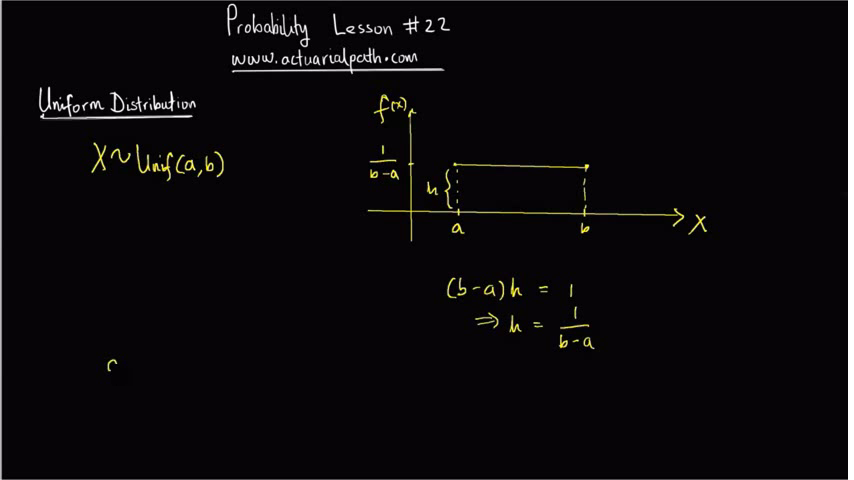 Probability Lesson #22
www.actuarialpath.com
Uniform Distribution
X ~ Unif(a,b)
f(x)
1/(b-a)
h {
a b X
(b-a)h = 1
⇒ h = 1/(b-a)